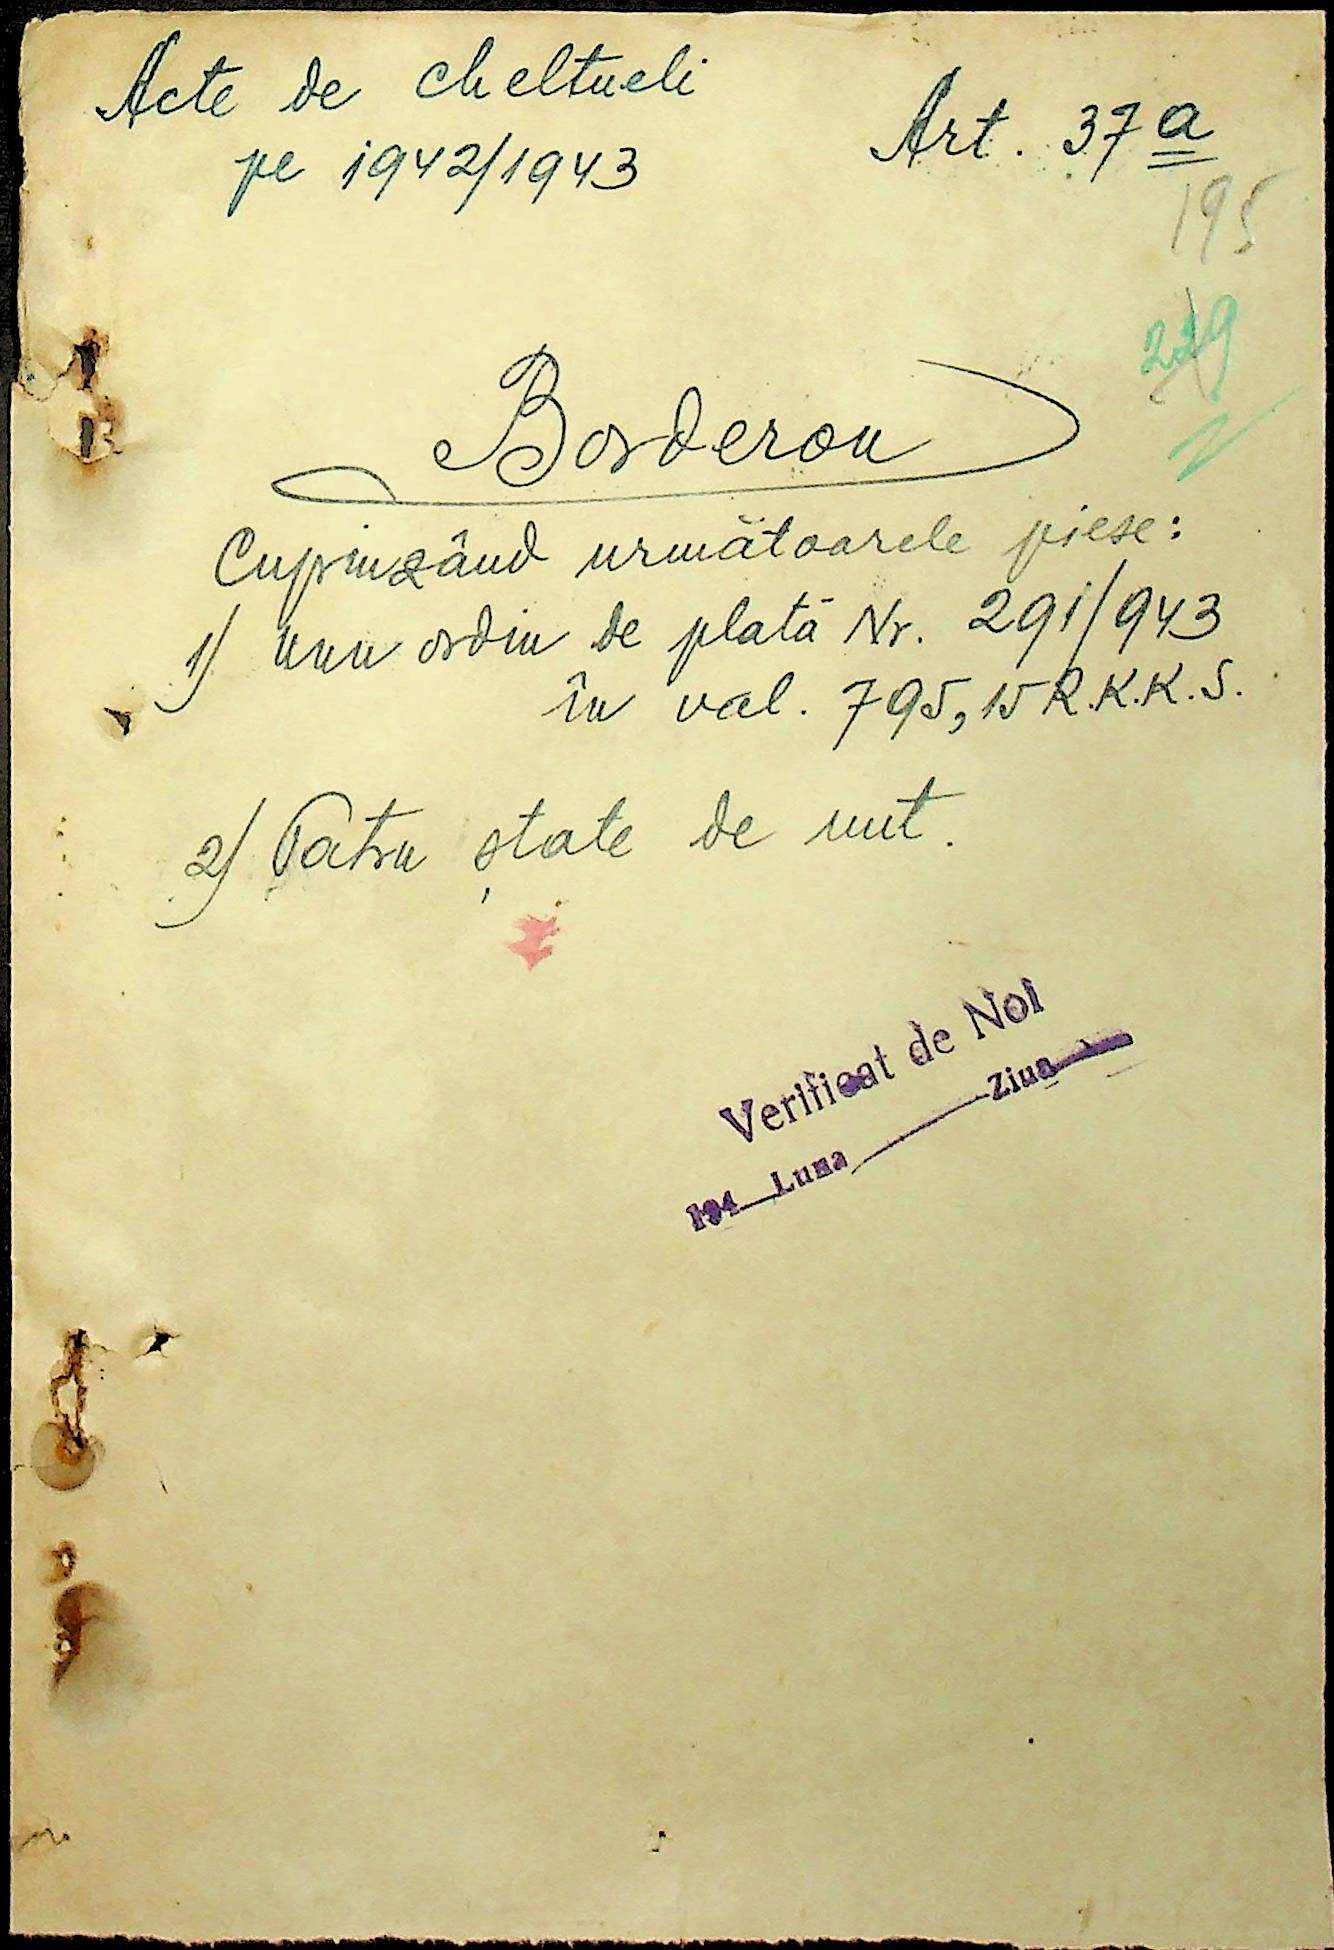 Acte de cheltueli
pe 1942/1943
Art. 37 a
195
229
Borderou
Cuprinzând următoarele piese:
1) unu ordin de plată Nr. 291/943
în val. 795,15 R.K.K.S.
2) Patru ștate de
Verificat de Noi
194 Luna Ziua